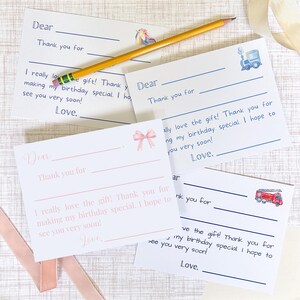 Dear
Thank you for
I really love the gift! Thank
making my birthday special. I
see you very soon!
Love,
Dear
Thank you for
love the gift! Thank you for
my birthday special. I hope to
you very soon!
Love,
Dear
Thank you for
I really love the gift! Thank you for
making my birthday special. I hope to
see you very soon!
Love,
you for
love the gift! Thank you for
my birthday special. I hope to
very soon!
Love,